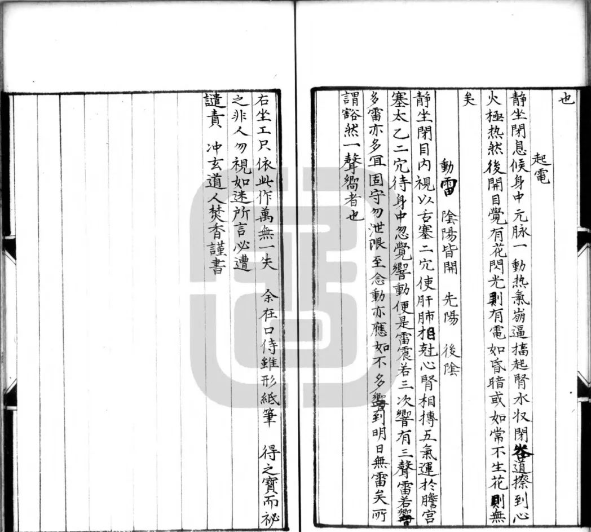 也
起電
静坐閉息候身中元脉一動热氣崩逼擋起腎水収閉道撩到心
火極热然後開目覺有花閃光則有電如昏暗或如常不生花則無
矣
動雷 陰陽皆開 先陽 後陰
静坐閉目内視以舌塞二穴使肝肺相尅心腎相摶五氣運於膽宫
塞太乙二穴待身中忽覺響動便是雷震若三次響有三聲雷若響
多雷亦多宜固守勿泄限至念動亦應如不多響到明日無雷矣所
謂豁然一聲嚮者也
右坐工只依此作萬無一失 余在口侍雖形紙筆 得之寶而祕
之非人勿視如迷所言必遭
譴責 冲玄道人焚香謹書